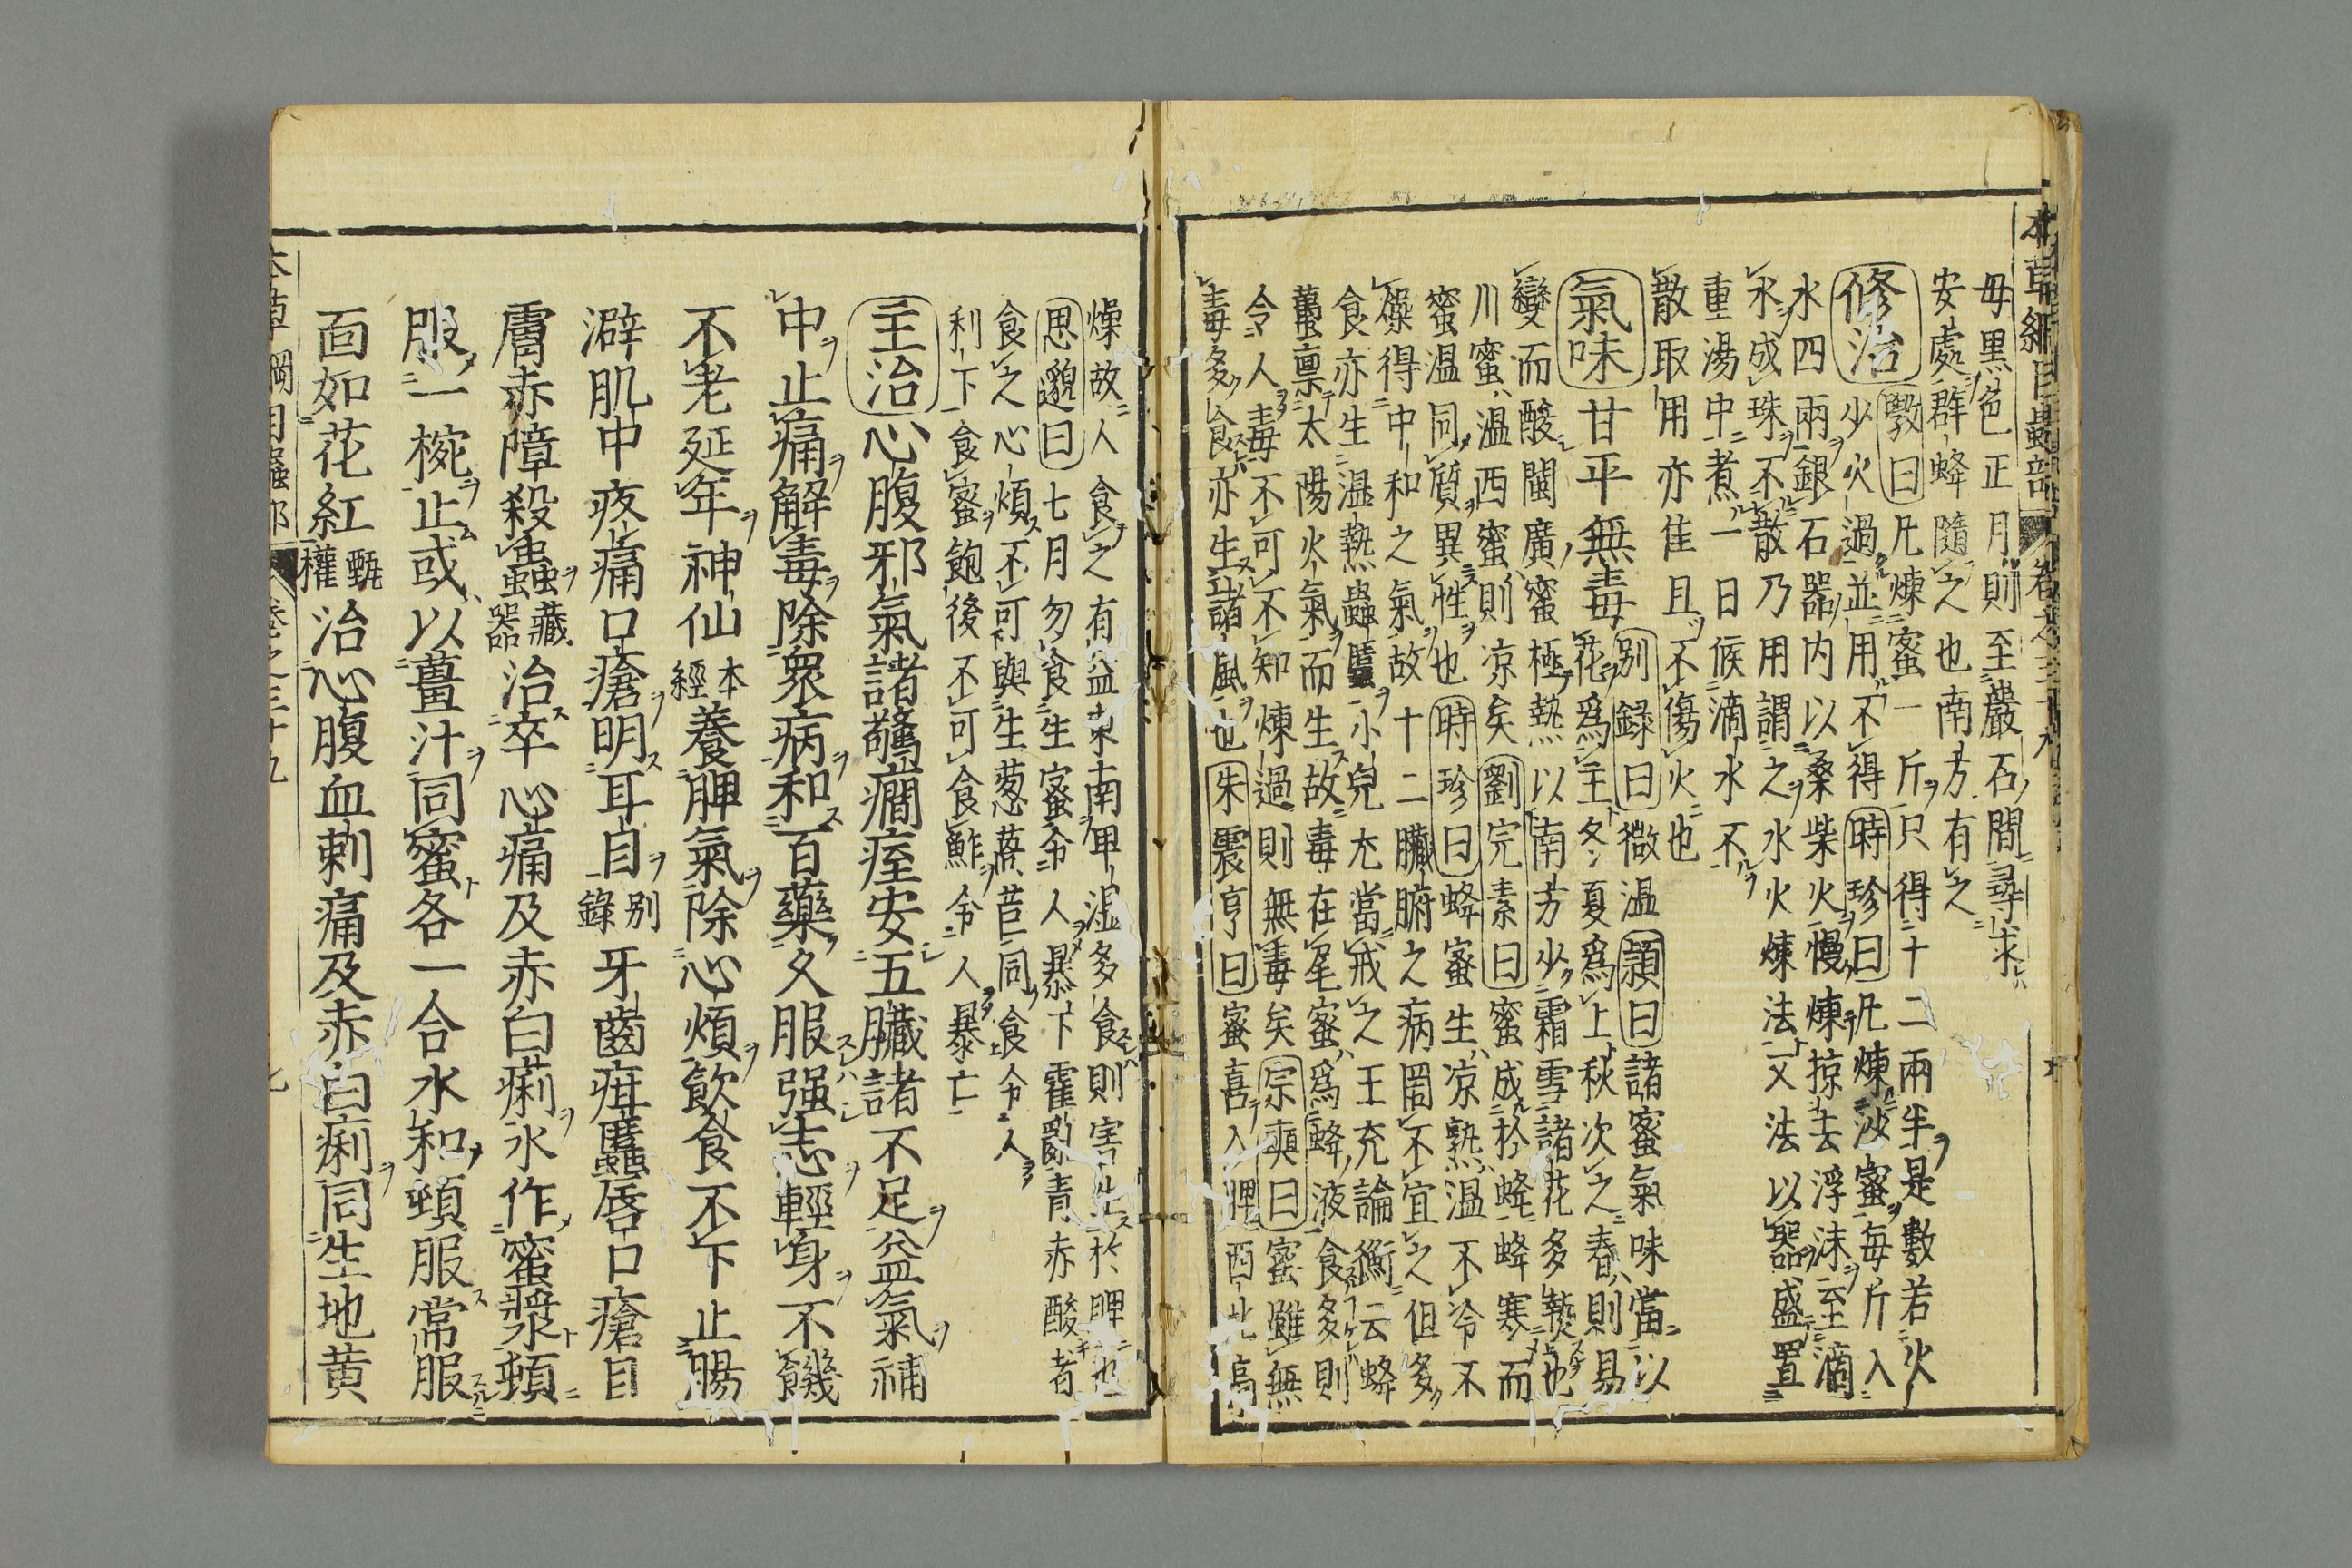 本草綱目蟲部 卷之三十九
毋黒色正月則至巖石間尋求
安處群蜂隨之也南方有之
修治 斆曰凡煉蜜一斤只得十二兩半是數若火
少火過並用不得 時珍曰凡煉沙蜜每斤入
水四兩銀石器内以桑柴火慢煉掠去浮沫至滴
水成珠不散乃用謂之水火煉法又法以器盛置
重湯中煮一日候滴水不
散取用亦佳且不傷火也
氣味 甘平無毒 別録曰微温 頴曰諸蜜氣味當以
花爲主冬夏爲上秋次之春則易
變而酸閩廣蜜極熱以南方少霜雪諸花多𤍠也
川蜜温西蜜則凉矣 劉完素曰蜜成於蜂蜂寒而
蜜温同質異性也 時珍曰蜂蜜生凉熟温不冷不
燥得中和之氣故十二臟腑之病罔不宜之但多
食亦生濕熱蟲䘌小兒尤當戒之王充論衡云蜂
蠆禀太陽火氣而生故毒在尾蜜爲蜂液食多則
令人毒不可不知煉過則無毒矣 宗奭曰蜜雖無
毒多食亦生諸風也 朱震亨曰蜜喜入脾西北高
燥故人食之有益東南卑湿多食則害生於脾也
思邈曰七月勿食生蜜令人暴下霍亂青赤酸者
食之心煩不可與生葱萵苣同食令人
利下食蜜飽後不可食鮓令人暴亡
主治 心腹邪氣諸驚癇痓安五臟諸不足益氣補
中止痛解毒除衆病和百藥久服强志輕身不饑
不老延年神仙 本經 養脾氣除心煩飲食不下止腸
澼肌中疼痛口瘡明耳目 別錄 牙齒疳䘌唇口瘡目
膚赤障殺蟲 藏器 治卒心痛及赤白痢水作蜜漿頓
服一椀止或以薑汁同蜜各一合水和頓服常服
面如花紅 甄權 治心腹血刺痛及赤白痢同生地黄
本草綱目蟲部 卷之三十九 七